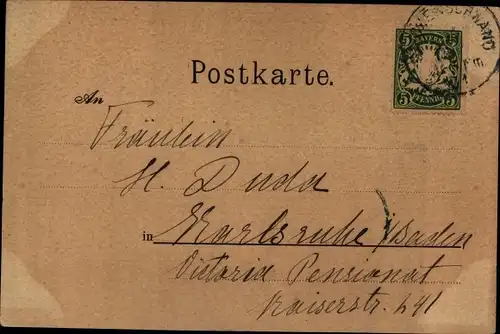 5 BAYERN 5
5 PFENNIG 5
Postkarte.
An
Fräulein
H. Duda
in Karlsruhe / Baden
Victoria Pensionat
Kaiserstr. 241